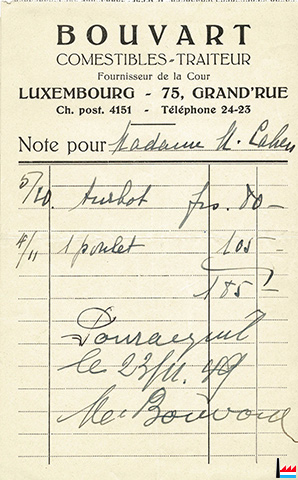 BOUVART
COMESTIBLES-TRAITEUR
Fournisseur de la Cour
LUXEMBOURG - 75, GRAND'RUE
Ch. post. 4151 - Téléphone 24-23
Note pour Madame N. Cahen
5/10. turbot frs. 80-
4/11 1 poulet 105-
185-
Pour acquit
le 23/11. 49
Me Bouvart